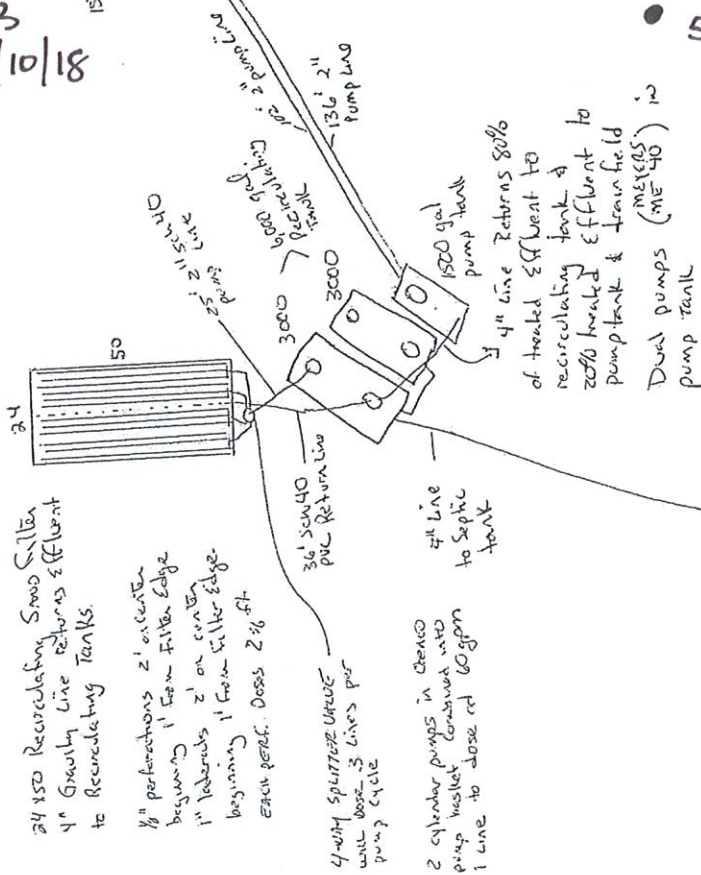 3
/10/18
15
5
24 x50 Recirculating Sand Filter
4" Gravity Line returns Effluent
to Recirculating Tanks.
1/8" perforations 2' on center
beginning 1' from Filter Edge
1" laterals 2' on center
beginning 1' from Filter Edge.
EACH PERF. Doses 2 sq ft.
4-WAY SPLITTER VALVE
will dose 3 lines per
pump cycle
2 cylinder pumps in Orenco
pump basket combined into
1 line to dose at 60 gpm
24
50
25' 2" Sch 40
pump line
36' Sch 40
PVC Return Line
4" Line
to Septic
tank
3000
3000
6,000 gal
Recirculating
Tank
102' 2" pump line
136' 2"
Pump Line
1500 gal
pump tank
4" Line Returns 80%
of treated Effluent to
recirculating tank &
20% treated Effluent to
pump tank & drainfield
Dual pumps (MEYERS ME 40) in
pump tank